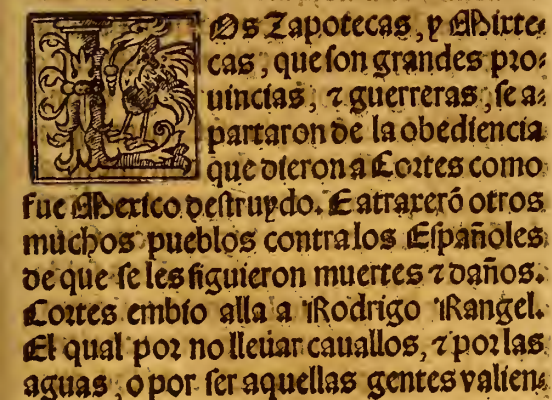 LOs Zapotecas, y Mixte-
cas, que son grandes pro-
uincias, ⁊ guerreras, se a-
partaron de la obediencia
que dieron a Cortes como
fue Mexico destruydo. E atraxerõ otros
muchos pueblos contra los Españoles
de que se les siguieron muertes ⁊ daños.
Cortes embio alla a Rodrigo Rangel.
El qual por no lleuar cauallos, ⁊ por las
aguas, o por ser aquellas gentes valien-